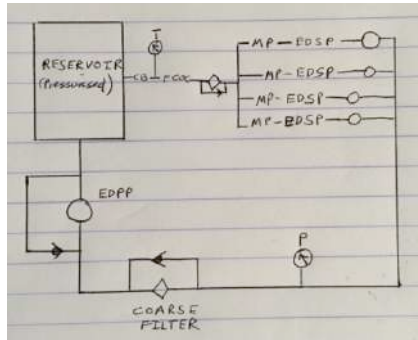 T
RESERVOIR
(Pressurised)
CB
FCOC
MP-EDSP
MP-EDSP
MP-EDSP
MP-EDSP
EDPP
P
COARSE
FILTER